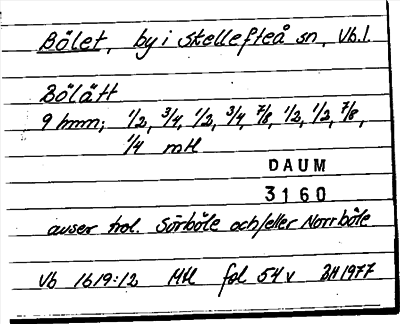 Bölet, by i Skellefteå sn, Vb.l.
Bölätt
9 hmn; 1/2, 3/4, 1/2, 3/4, 7/8, 1/2, 1/2, 7/8,
1/4 mtl
DAUM
3160
avser trol. Sörböle och/eller Norrböle
Vb 1619:12 Mtl fol 54 v BH 1977